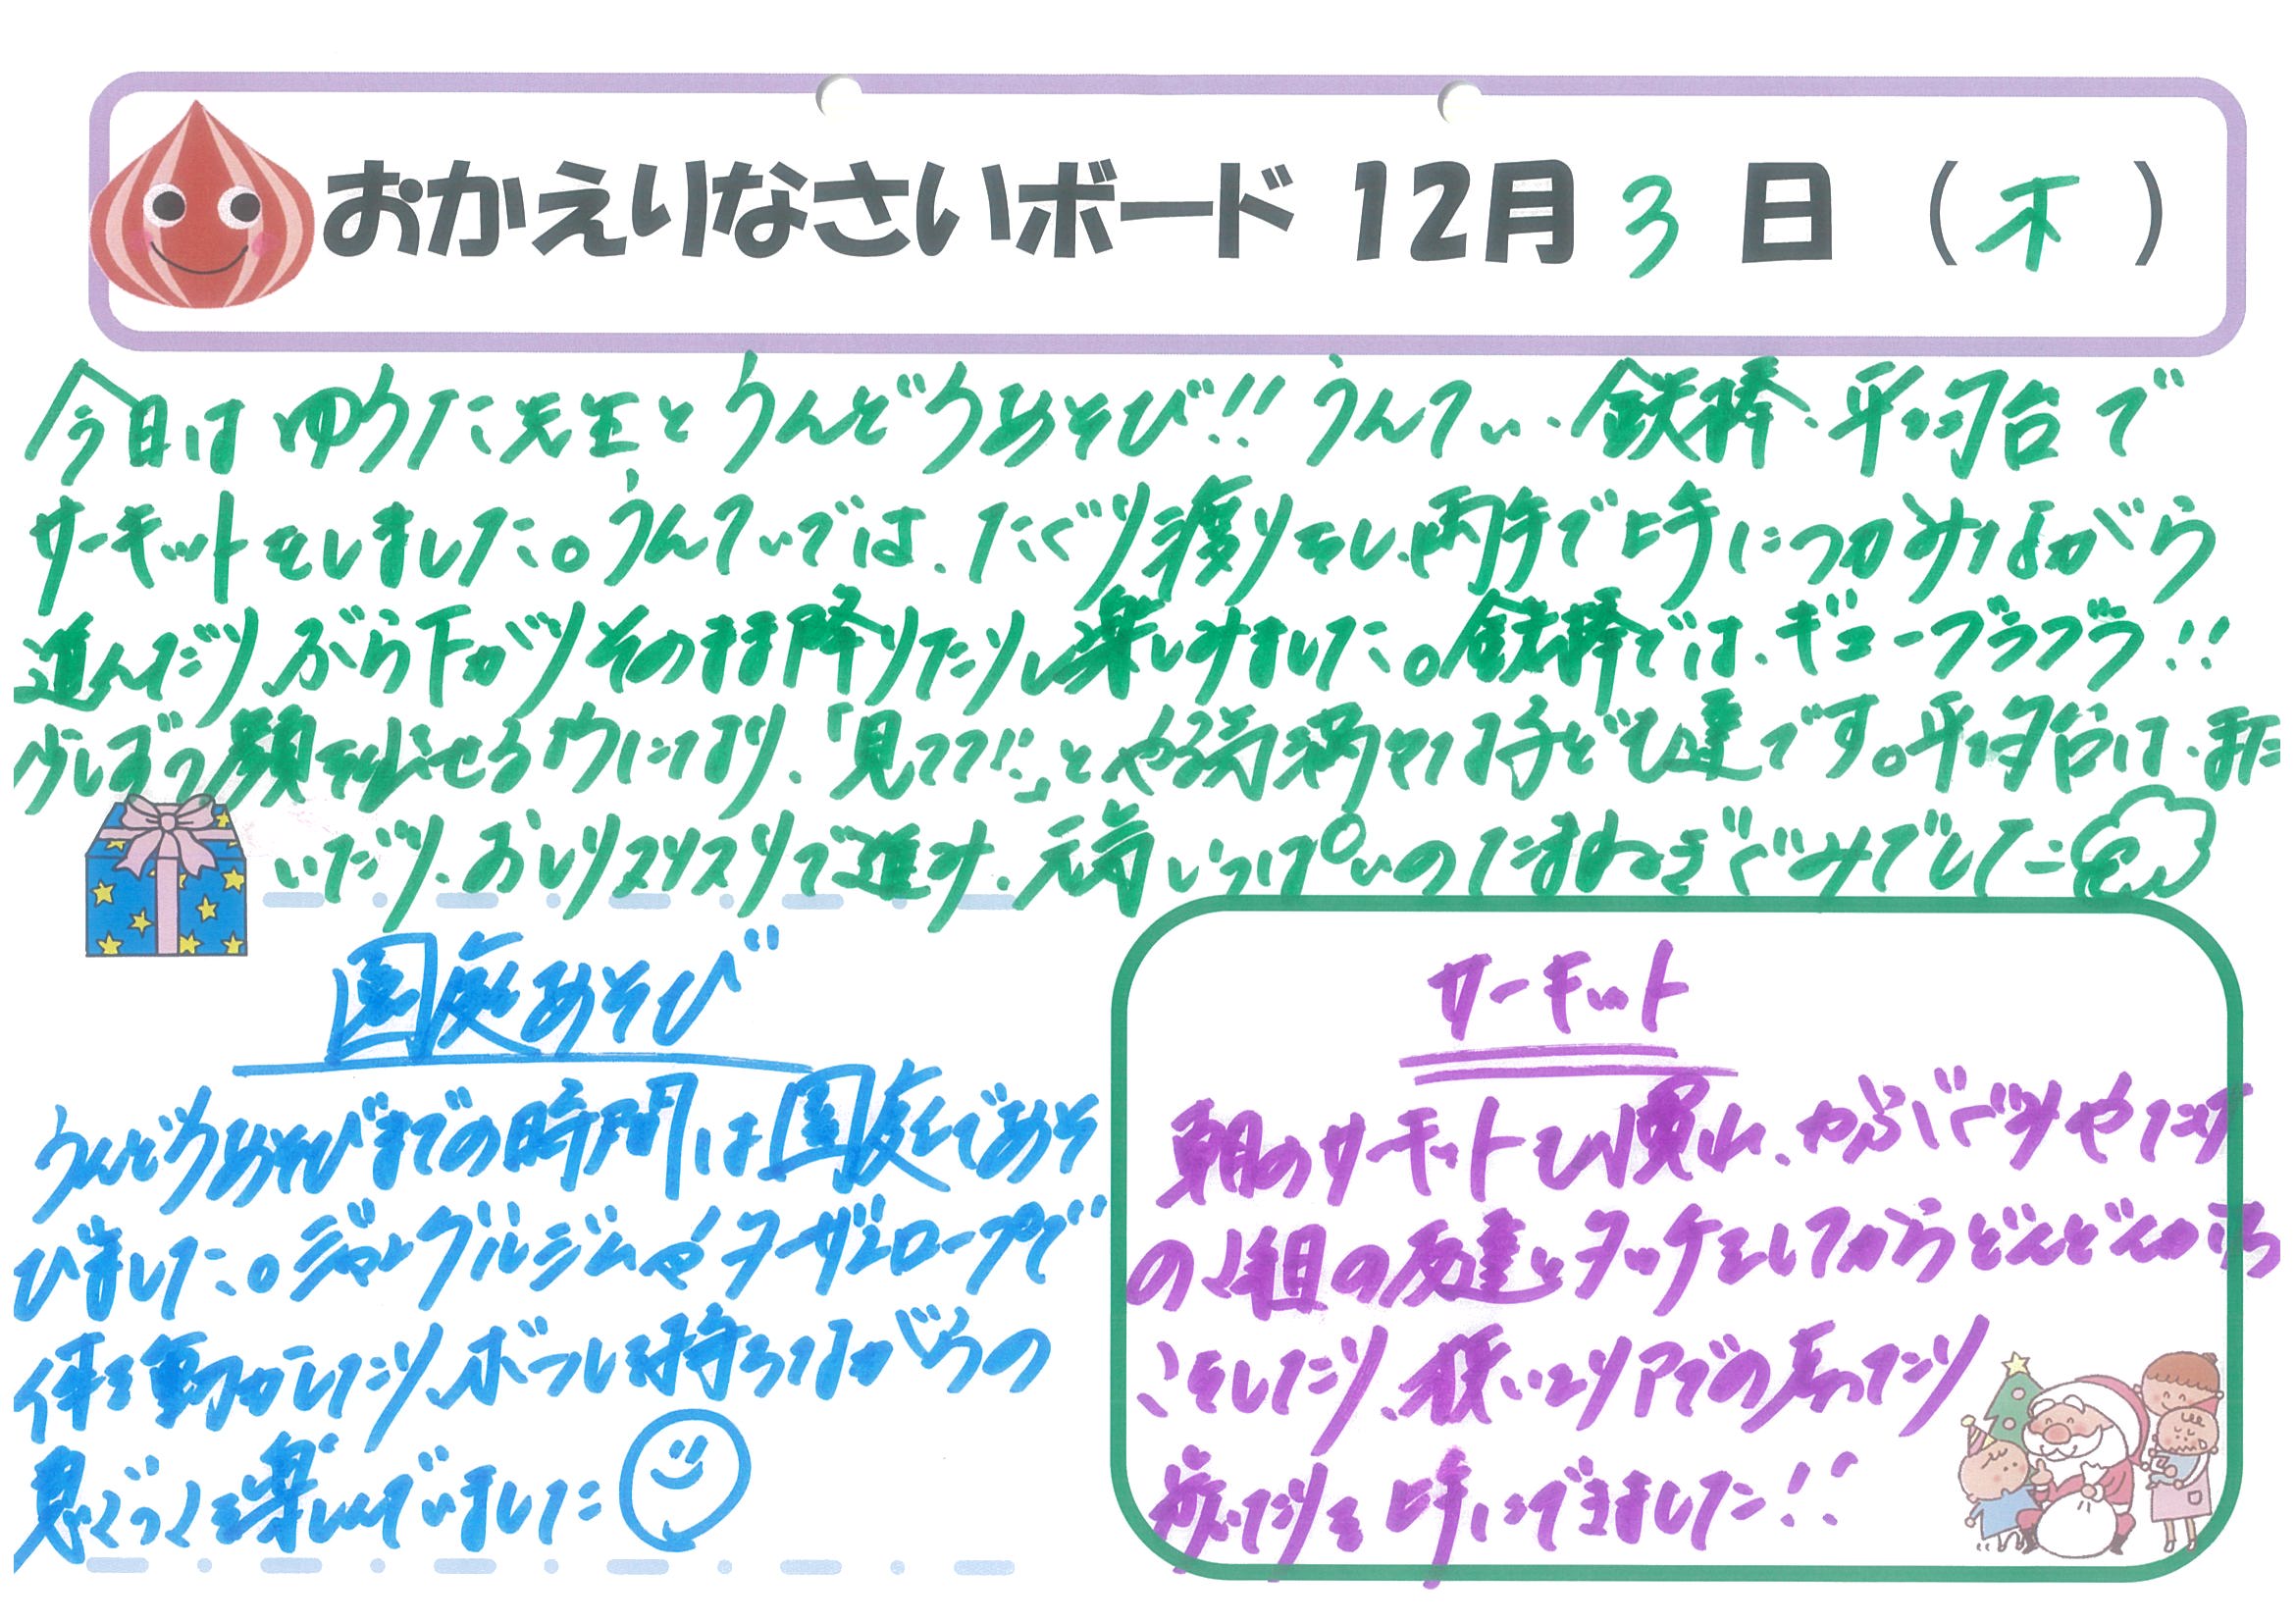 おかえりなさいボード 12月 3 日 (木)
今日は ゆうた先生と うんどうあそび!! うんてい、鉄棒、平均台で
サーキットをしました。うんていでは、たぐり渡りをし、両手で上手につかみながら
進んだり ぶら下がり そのまま降りたりし楽しみました。鉄棒では、ギュープラプラ!!
少しずつ顔を 見せる ようになり、「見てて!!」と 満 な子ども達です。平均台は、また
いだり、おしりスリスリで進み、元気いっぱいのたまねぎぐみでした
園庭あそび
うんどうあそびまでの時間は園庭であそ
びました。ジャングルジムや ターザンロープで
体を動かしたり、ボールを持ちながらの
おにごっこを楽しんでいました
サーキット
朝のサーキットも 慣れ、かぶぐみやたけ
のこ組の友達とタッチをしてからどんどんかけっ
こをしたり、狭いエリアでの走ったり
歩いたりを 上手にできました!!